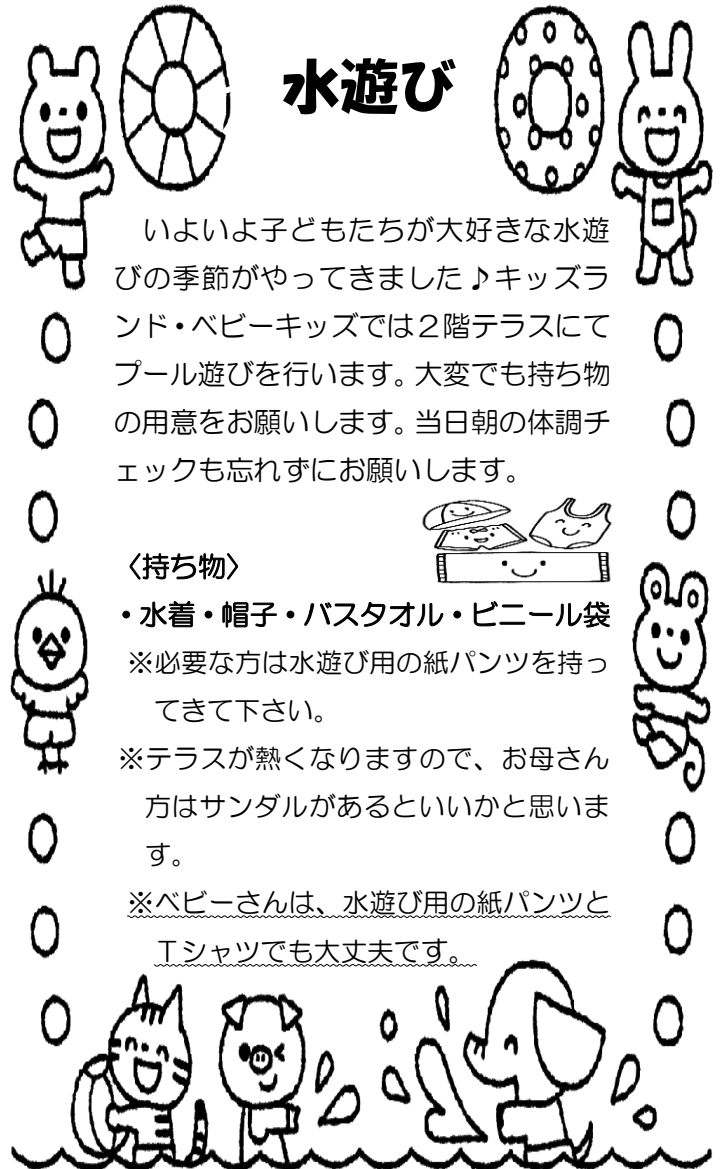 水遊び
いよいよ子どもたちが大好きな水遊
びの季節がやってきました♪キッズラ
ンド・ベビーキッズでは２階テラスにて
プール遊びを行います。大変でも持ち物
の用意をお願いします。当日朝の体調チ
ェックも忘れずにお願いします。
〈持ち物〉
・水着・帽子・バスタオル・ビニール袋
※必要な方は水遊び用の紙パンツを持っ
てきて下さい。
※テラスが熱くなりますので、お母さん
方はサンダルがあるといいかと思いま
す。
※ベビーさんは、水遊び用の紙パンツと
Ｔシャツでも大丈夫です。